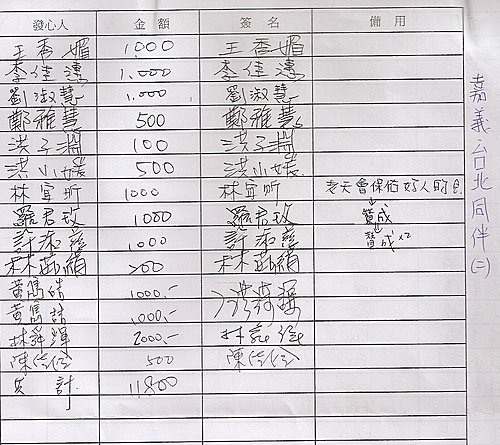 發心人 金額 簽名 備用
王香媚 1,000 王香媚
李佳 1,000 李佳
劉淑慧 1,000 劉淑慧
鄭雅慧 500 鄭雅慧
洪子 100 洪子
洪小媛 500 洪小媛
林宜昕 1000 林宜昕 老天會保佑好人的
羅君玫 1000 羅君玫 贊成
許 1000 許 贊成x2
林 200 林
黃 1000.-
黃 1000.-
林舜輝 2000.- 林
陳 500 陳
共計 11,800
嘉義台北同伴(二)